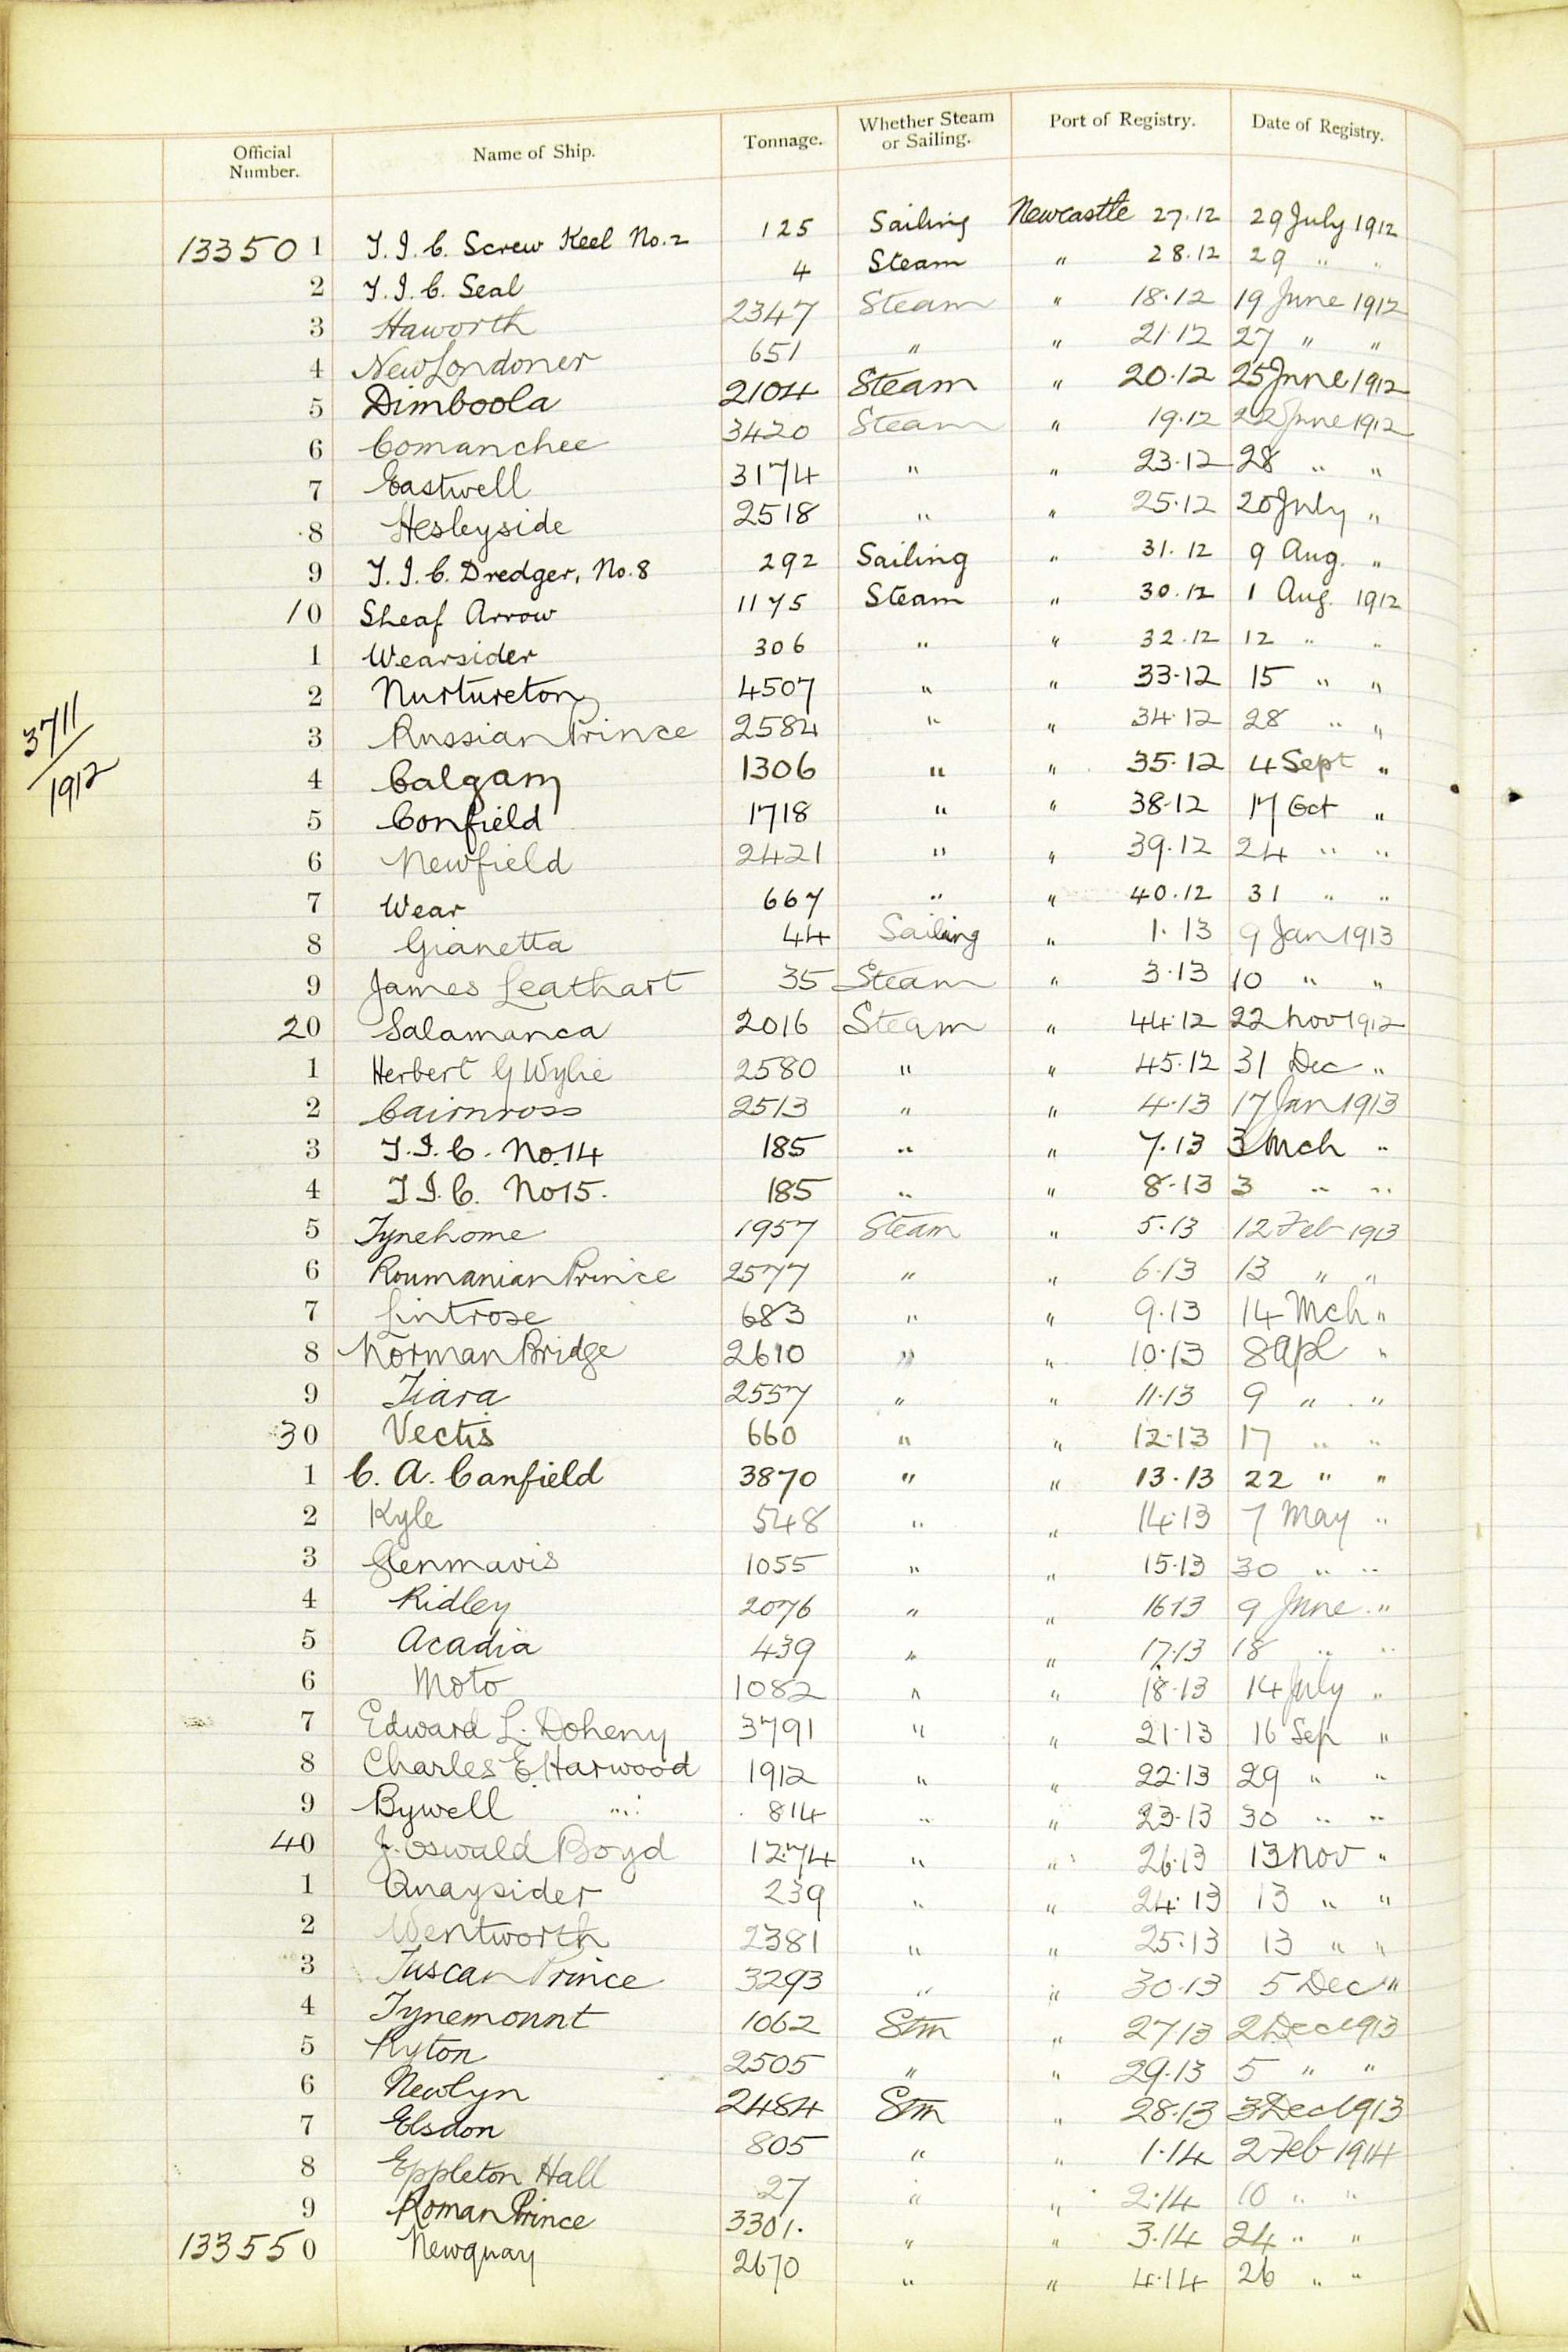 Official Number. Name of Ship. Tonnage. Whether Steam or Sailing. Port of Registry. Date of Registry.
133501 T.I.C. Screw Keel No.2 125 Sailing Newcastle 27.12 29 July 1912
2 T.I.C. Seal 4 Steam " 28.12 29 " "
3 Haworth 2347 Steam " 18.12 19 June 1912
4 New Londoner 651 " " 21.12 27 " "
5 Dimboola 2104 Steam " 20.12 25 June 1912
6 Comanchee 3420 Steam " 19.12 22 June 1912
7 Eastwell 3174 " " 23.12 28 " "
8 Hesleyside 2518 " " 25.12 20 July "
9 T.I.C. Dredger, No.8 292 Sailing " 31.12 9 Aug. "
10 Sheaf Arrow 1175 Steam " 30.12 1 Aug. 1912
1 Wearsider 306 " " 32.12 12 " "
2 Nurtureton 4507 " " 33.12 15 " "
3 Russian Prince 2584 " " 34.12 28 " "
3711/1912
4 Calgary 1306 " " 35.12 4 Sept "
5 Confield 1718 " " 38.12 17 Oct "
6 Newfield 2421 " " 39.12 24 " "
7 Wear 667 " " 40.12 31 " "
8 Gianetta 44 Sailing " 1.13 9 Jan 1913
9 James Leathart 35 Steam " 3.13 10 " "
20 Salamanca 2016 Steam " 44.12 22 Nov 1912
1 Herbert G Wylie 2580 " " 45.12 31 Dec "
2 Cairnross 2513 " " 4.13 17 Jan 1913
3 T.I.C. No.14 185 " " 7.13 3 Mch "
4 T.I.C. No 15. 185 " " 8.13 3 " "
5 Tynehome 1957 Steam " 5.13 12 Feb 1913
6 Roumanian Prince 2577 " " 6.13 13 " "
7 Lintrose 683 " " 9.13 14 Mch "
8 Norman Bridge 2610 " " 10.13 8 Apl "
9 Tiara 2557 " " 11.13 9 " "
30 Vectis 660 " " 12.13 17 " "
1 C. A. Canfield 3870 " " 13.13 22 " "
2 Kyle 548 " " 14.13 7 May "
3 Glenmavis 1055 " " 15.13 30 " "
4 Ridley 2076 " " 16 13 9 June "
5 Acadia 439 " " 17.13 18 " "
6 Moto 1082 " " 18.13 14 July "
7 Edward L. Doheny 3791 " " 21.13 16 Sep "
8 Charles E. Harwood 1912 " " 22.13 29 " "
9 Bywell 814 " " 23.13 30 " "
40 J. Oswald Boyd 1274 " " 26.13 13 Nov "
1 Quaysider 239 " " 24.13 13 " "
2 Wentworth 2381 " " 25.13 13 " "
3 Tuscan Prince 3293 " " 30.13 5 Dec "
4 Tynemount 1062 Stm " 27 13 2 Dec 1913
5 Ryton 2505 " " 29.13 5 " "
6 Newlyn 2484 Stm " 28.13 3 Dec 1913
7 Elsdon 805 " " 1.14 2 Feb 1914
8 Eppleton Hall 27 " " 2.14 10 " "
9 Roman Prince 3301. " " 3.14 24 " "
133550 Newquay 2670 " " 4.14 26 " "